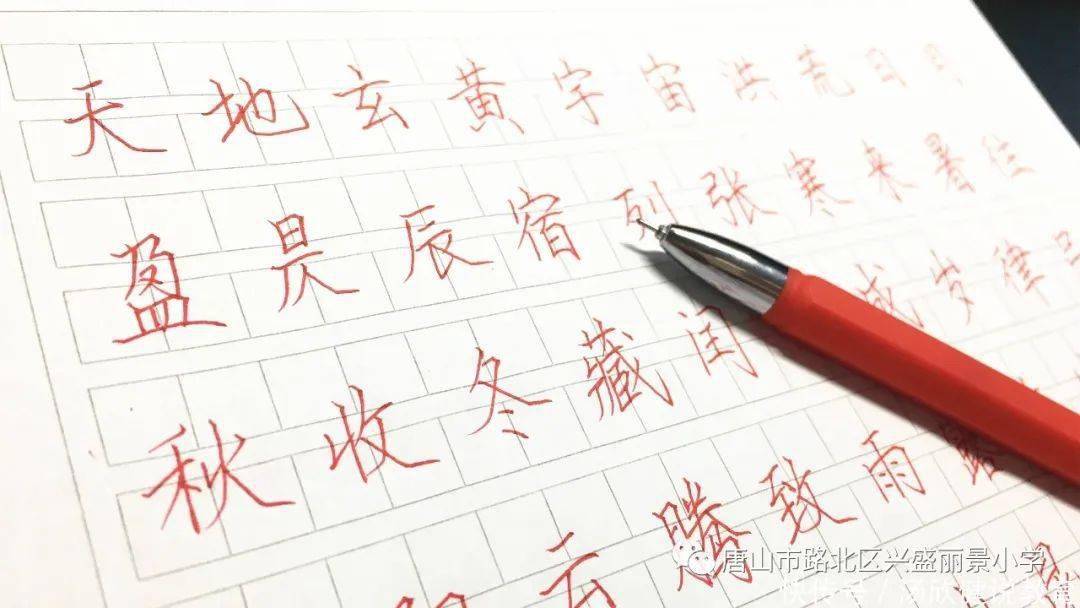 天地玄黄宇宙洪荒日月
盈昃辰宿列张寒来暑往
秋收冬藏闰成岁律吕
云腾致雨露
唐山市路北区兴盛丽景小学
快传号